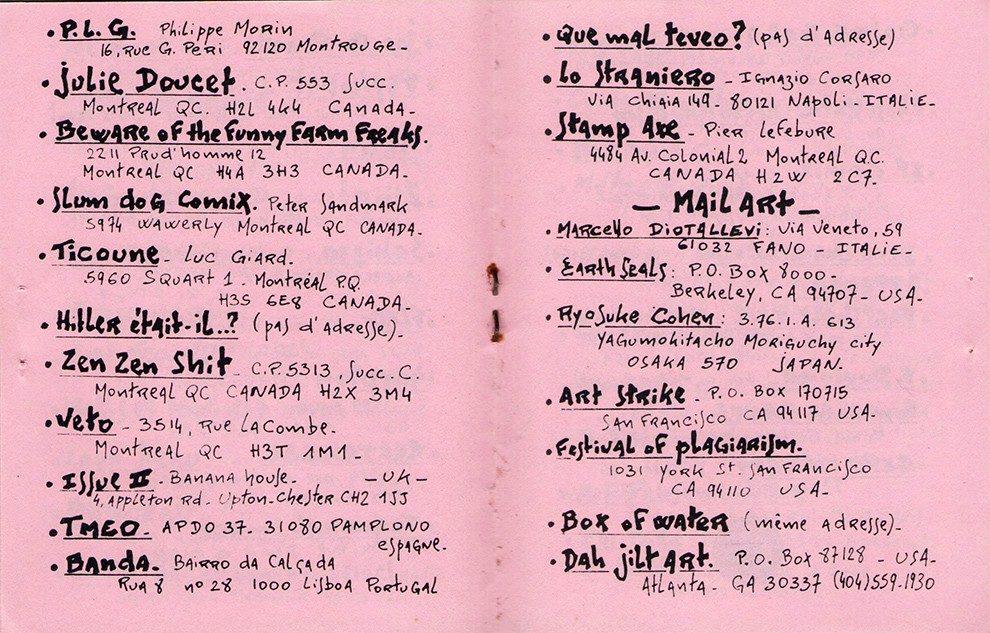 • P.L.G. Philippe Morin
16, Rue G. Peri 92120 Montrouge -
• Julie Doucet. C.P. 553 Succ.
Montreal QC. H2L 4K4 Canada -
• Beware of the Funny Farm Freaks.
2211 Prud'homme 12
Montreal QC H4A 3H3 CANADA -
• Slum dog Comix. Peter Sandmark
5974 Wawerly Montreal QC CANADA -
• Ticoune - Luc Giard.
5960 Squart 1 - Montréal P.Q.
H3S 6E8 CANADA -
• Hitler était-il..? (pas d'adresse) -
• Zen Zen Shit - C.P. 5313, Succ. C.
Montreal QC CANADA H2X 3M4
• Veto - 3514, Rue Lacombe -
Montreal QC H3T 1M1 -
• Issue II - Banana house. - UK -
4, Appleton Rd - Upton-Chester CH2 1JJ
• TMEO - APDO 37 - 31080 PAMPLONO
espagne -
• Banda - Bairro da Calçada
Rua 8 nº 28 1000 Lisboa Portugal
• Que mal teveo? (pas d'adresse)
• Lo Straniero - Ignazio Corsaro
Via Chiaia 149 - 80121 Napoli - ITALIE -
• Stamp Axe - Pier Lefebure
4484 Av. Colonial 2 Montreal Q.C.
CANADA H2W 2C7 -
— MAIL ART —
• Marcello Diotallevi: Via Veneto, 59
61032 FANO - ITALIE -
• Earth Seals: P.O. Box 8000 -
Berkeley, CA 94707 - USA -
• Ryosuke Cohen: 3.76.1.A. 613
Yagumokitacho Moriguchy city
OSAKA 570 JAPAN -
• Art Strike - P.O. Box 170715
San Francisco CA 94117 USA -
• Festival of plagiarism.
1031 York St. San Francisco
CA 94110 USA -
• Box of water (même adresse) -
• Dah jilt Art. P.O. Box 87128 - USA -
Atlanta - GA 30337 (404) 559-1930